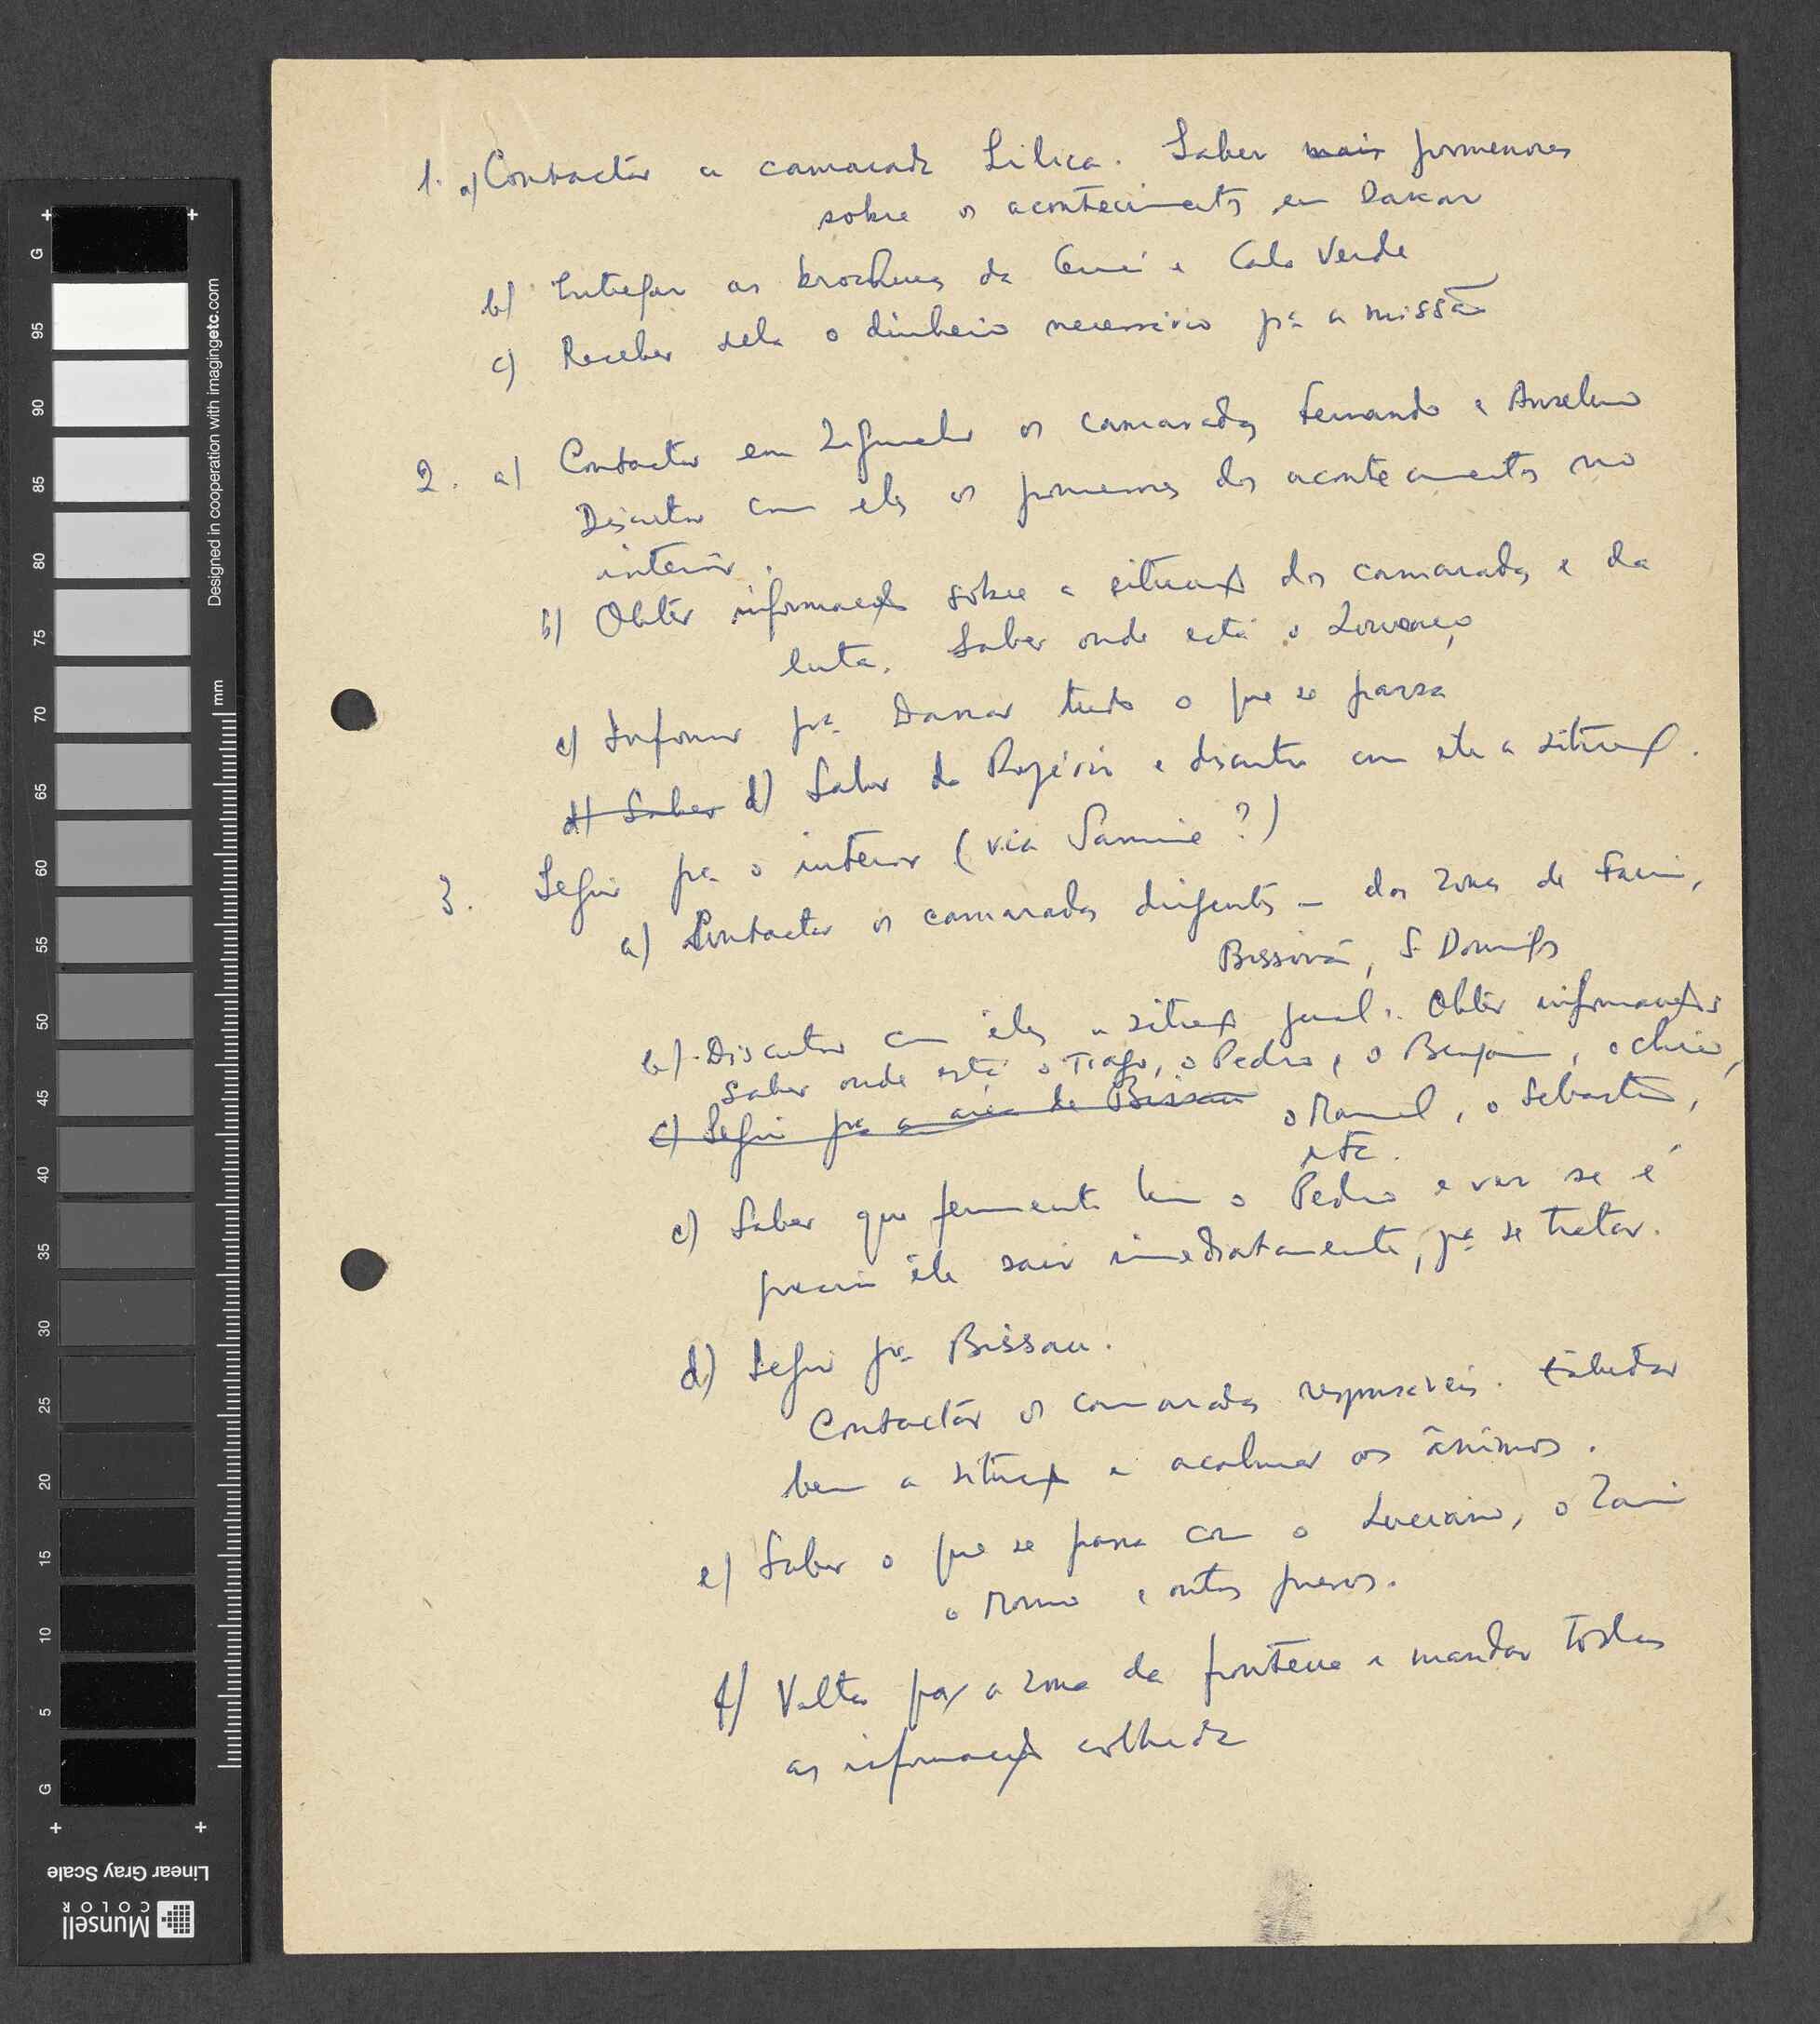 1. a) Contactar a camarada Lilica. Saber mais pormenores
sobre os acontecimentos em Dakar
b) Entregar as brochuras da Guiné e Cabo Verde
c) Receber dela o dinheiro necessário pª a missão
2. a) Contactar em Ziguinchor os camaradas Fernando e Anselmo
Discutir com eles os pormenores dos acontecimentos no
interior.
b) Obter informações sobre a situação dos camaradas e da
luta. Saber onde está o Lourenço
c) Informar pª Dakar tudo o que se passa
d) Saber d) Saber do Rogério e discutir com ele a situação.
3. Seguir pª o interior (via Samine?)
a) Contactar os camaradas dirigentes - das zonas de Farim,
Bissorã, S. Domingos
b) Discutir com êles a situação geral. Obter informações
Saber onde está o Tiago, o Pedro, o Benjamim, o Chico,
c) Seguir pª a área de Bissau o Manuel, o Sebastião,
etc.
c) Saber que ferimento tem o Pedro e ver se é
preciso êle sair imediatamente, pª se tratar.
d) Seguir pª Bissau.
Contactar os camaradas responsáveis. Estudar
bem a situação e acalmar os ânimos.
e) Saber o que se passa com o Luciano, o
o Momo e outros presos.
f) Voltar para a zona da fronteira e mandar todas
as informações colhidas
G
95
90
85
80
75
70
65
60
55
50
45
40
35
30
25
20
15
10
5
G
mm
Designed in cooperation with imagingetc.com
Linear Gray Scale
Munsell
COLOR